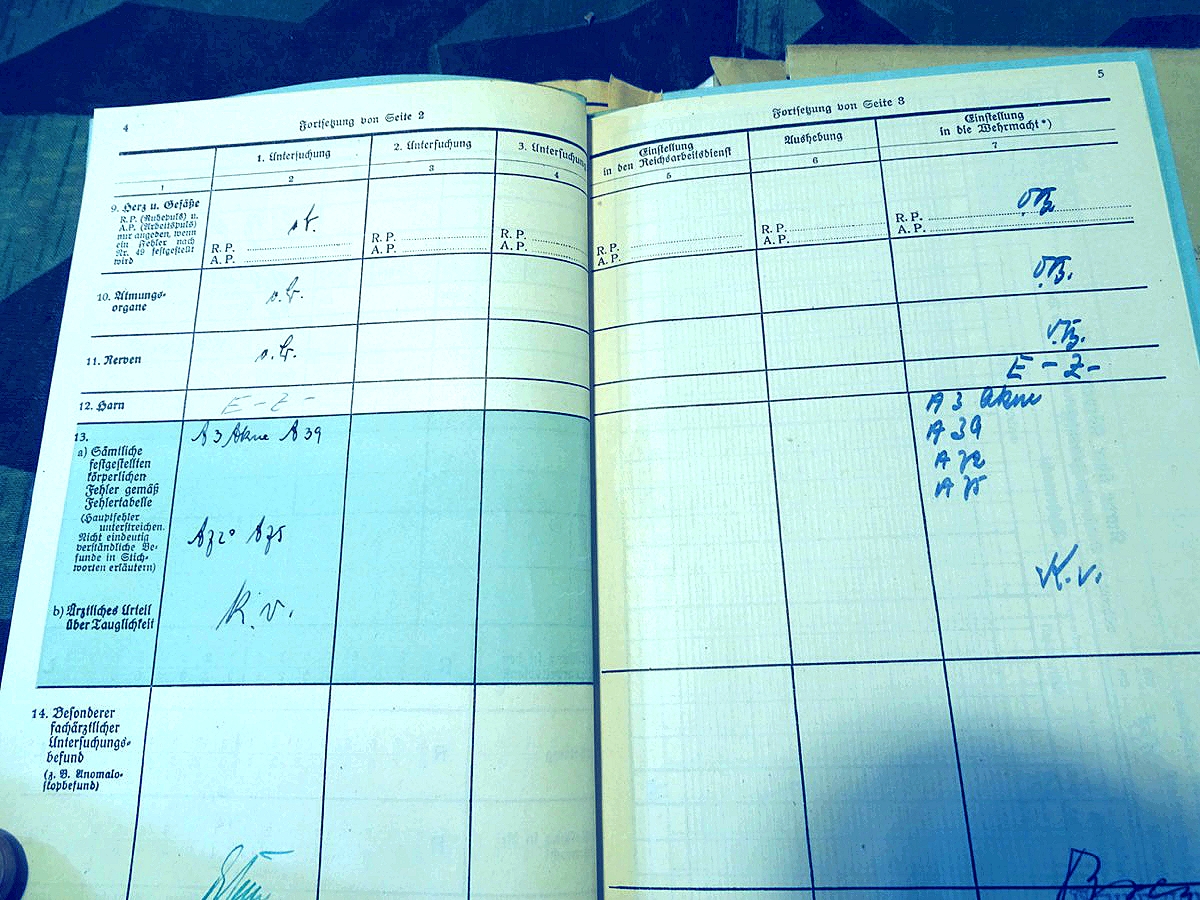 4
Fortsetzung von Seite 2
1. Untersuchung
2. Untersuchung
3. Untersuchung
1
2
3
4
9. Herz u. Gefäße
R. P. (Ruhepuls) u.
A. P. (Arbeitspuls)
nur angeben, wenn
ein Fehler nach
Nr. 49 festgestellt
wird
R. P.
A. P.
R. P.
A. P.
R. P.
A. P.
10. Atmungs-
organe
o. B.
11. Nerven
o. B.
12. Harn
E - Z -
13.
a) Sämtliche
festgestellten
körperlichen
Fehler gemäß
Fehlertabelle
(Hauptfehler
unterstreichen.
Nicht eindeutig
verständliche Be-
funde in Stich-
worten erläutern)
A 3 Akne A 39
A 72 A 75
b) Ärztliches Urteil
über Tauglichkeit
k. v.
14. Besonderer
fachärztlicher
Untersuchungs-
befund
(z. B. Anomalo-
skopbefund)
5
Fortsetzung von Seite 3
Einstellung
in den Reichsarbeitsdienst
Aushebung
Einstellung
in die Wehrmacht*)
5
6
7
R. P.
A. P.
R. P.
A. P.
R. P.
A. P.
E - Z -
A 3 Akne
A 39
A 72
A 75
K. v.